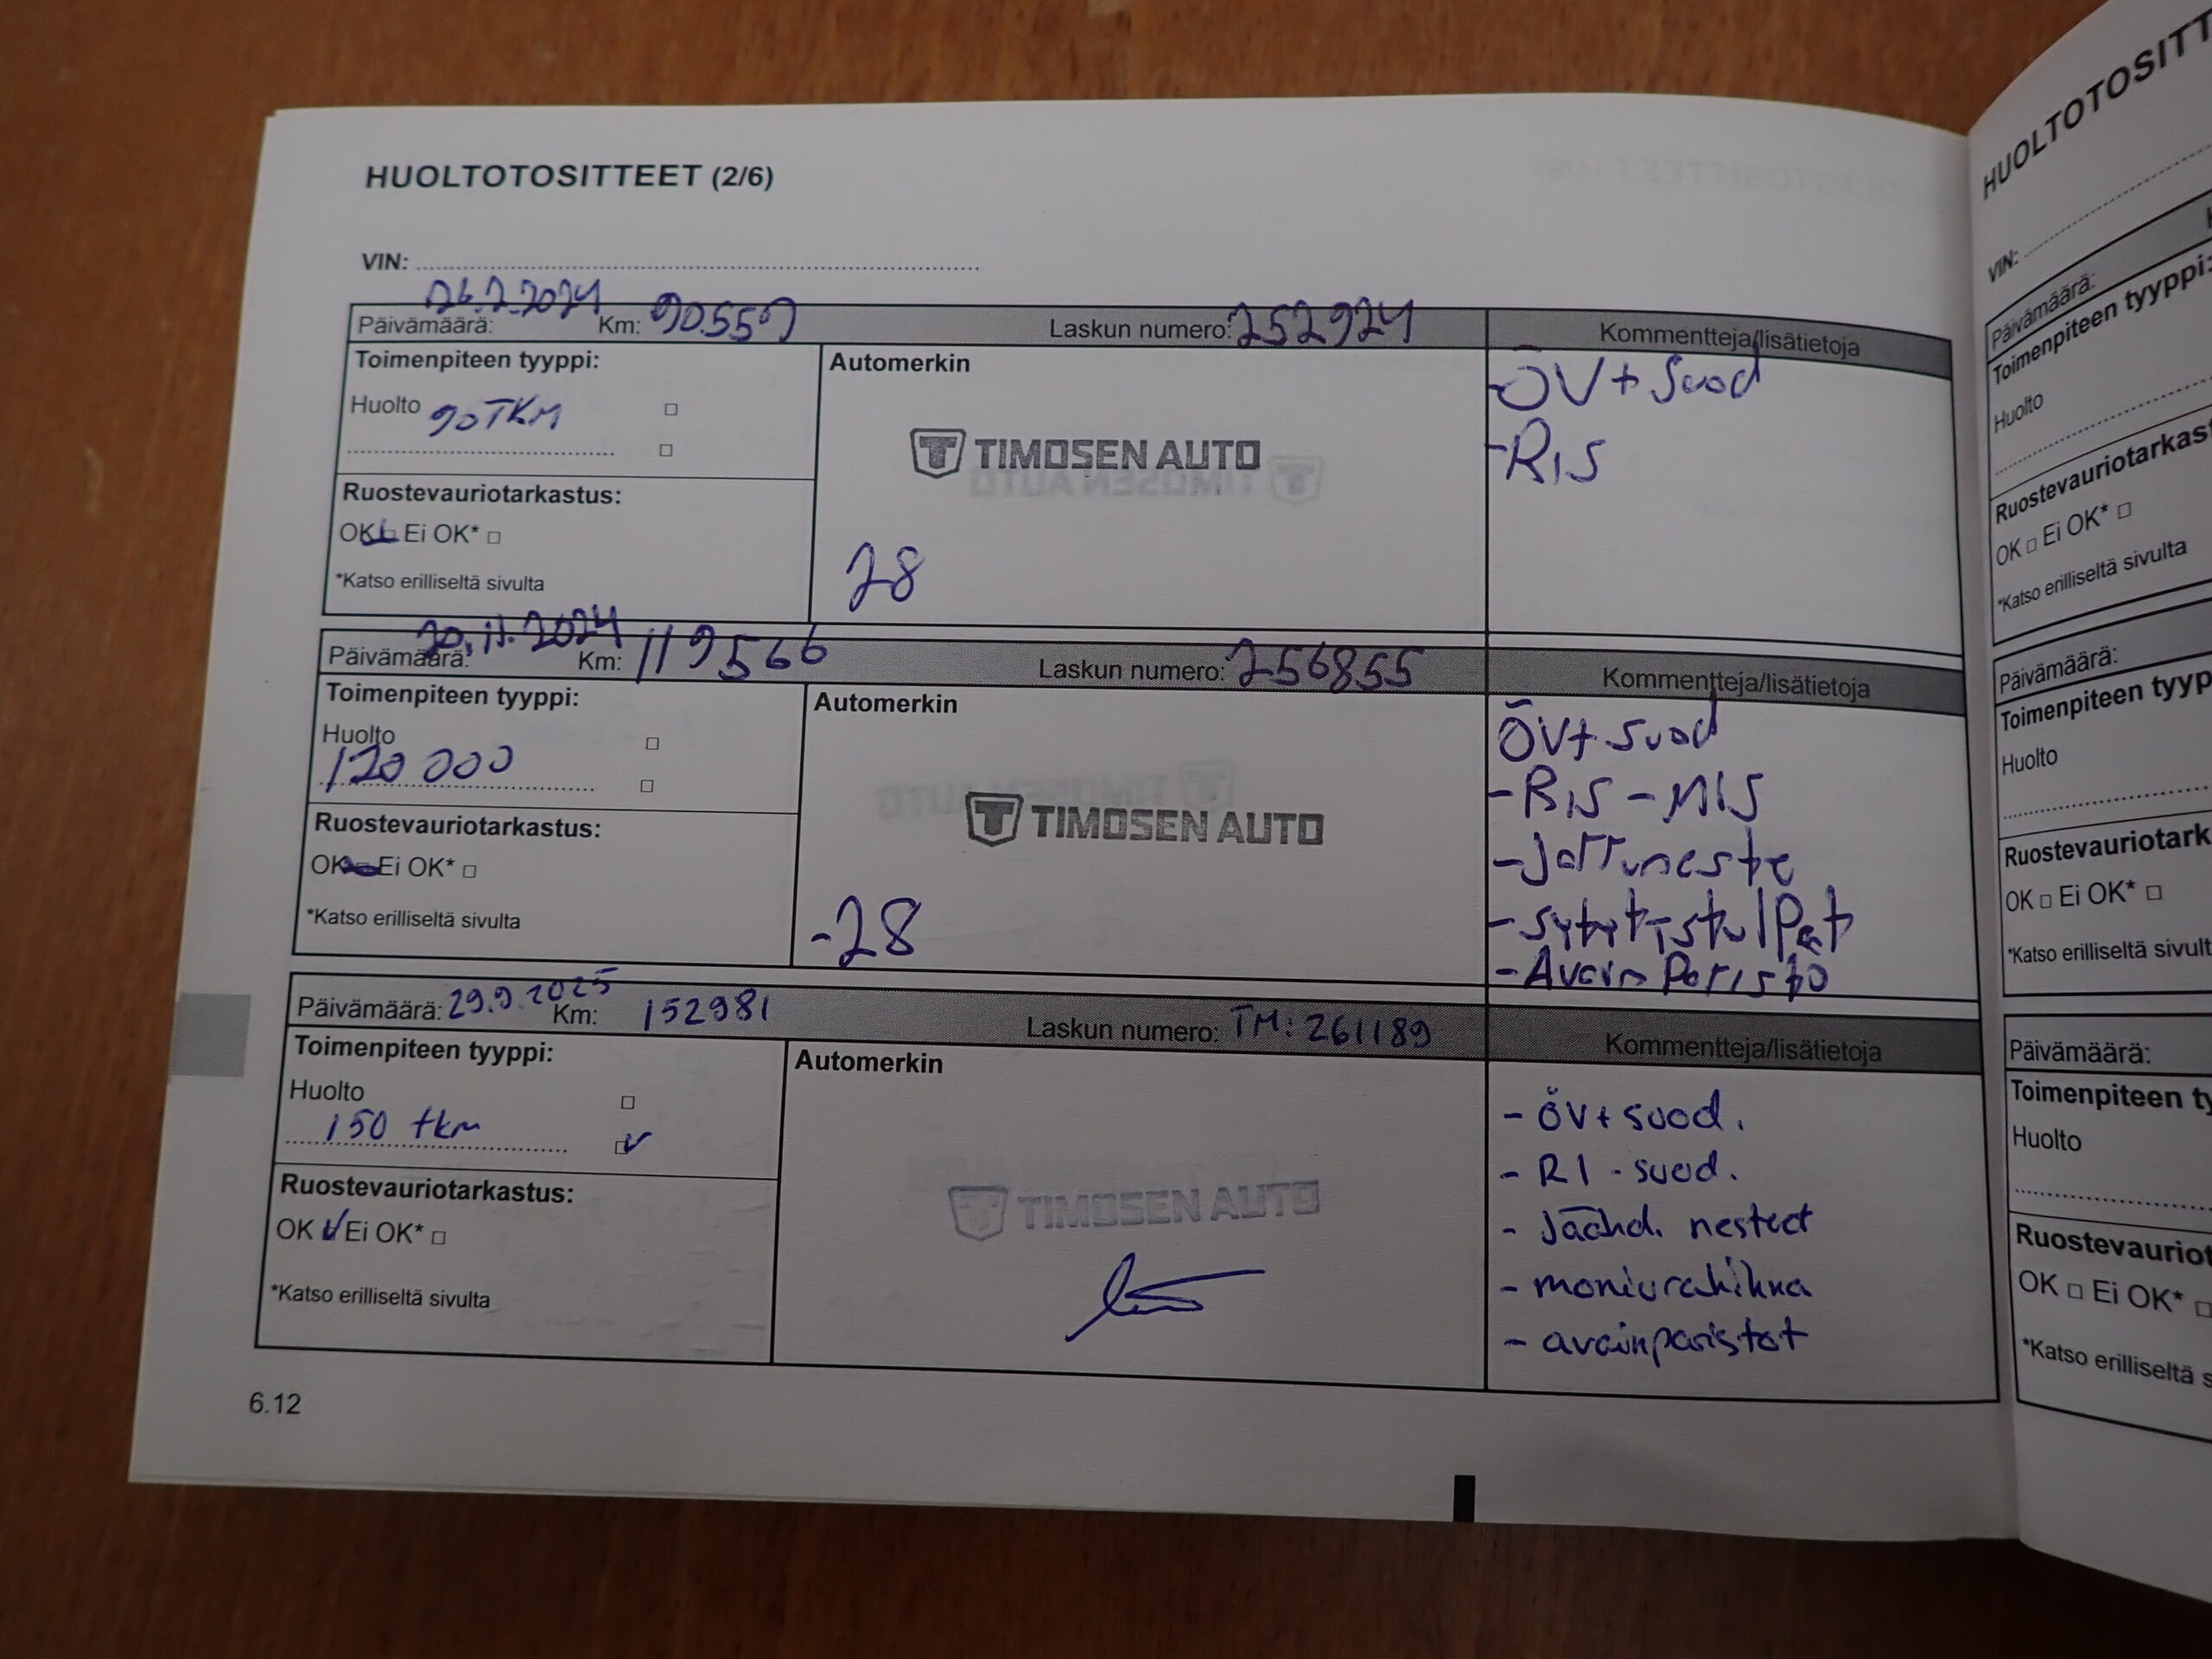 HUOLTOTOSITTEET (2/6)
VIN:
Päivämäärä: 26.2.2024 Km: 90559 Laskun numero: 252924 Kommentteja/lisätietoja
Toimenpiteen tyyppi:
Huolto 90TKM
Automerkin
TIMOSEN AUTO
28
-ÖV+ Suod
-RIS
Ruostevauriotarkastus:
OK Ei OK*
*Katso erilliseltä sivulta
Päivämäärä: 20.11.2024 Km: 119566 Laskun numero: 256855 Kommentteja/lisätietoja
Toimenpiteen tyyppi:
Huolto
120 000
Automerkin
TIMOSEN AUTO
-28
ÖV+ Suod
-RIS -MIS
-Jarruneste
-sytytystulpat
-Avain Paristo
Ruostevauriotarkastus:
OK Ei OK*
*Katso erilliseltä sivulta
Päivämäärä: 29.9.2025 Km: 152981 Laskun numero: TM: 261189 Kommentteja/lisätietoja
Toimenpiteen tyyppi:
Huolto
150 tkm
Automerkin
TIMOSEN AUTO
- öv+ suod.
- RI - suod.
- Jäähd. nesteet
- moniurahihna
- avainparistot
Ruostevauriotarkastus:
OK Ei OK*
*Katso erilliseltä sivulta
6.12
HUOLTOTOSITT
VIN:
Päivämäärä:
Toimenpiteen tyyppi:
Huolto
Ruostevauriotarkast
OK Ei OK*
*Katso erilliseltä sivulta
Päivämäärä:
Toimenpiteen tyyp
Huolto
Ruostevauriotark
OK Ei OK*
*Katso erilliseltä sivult
Päivämäärä:
Toimenpiteen ty
Huolto
Ruostevauriot
OK Ei OK*
*Katso erilliseltä s